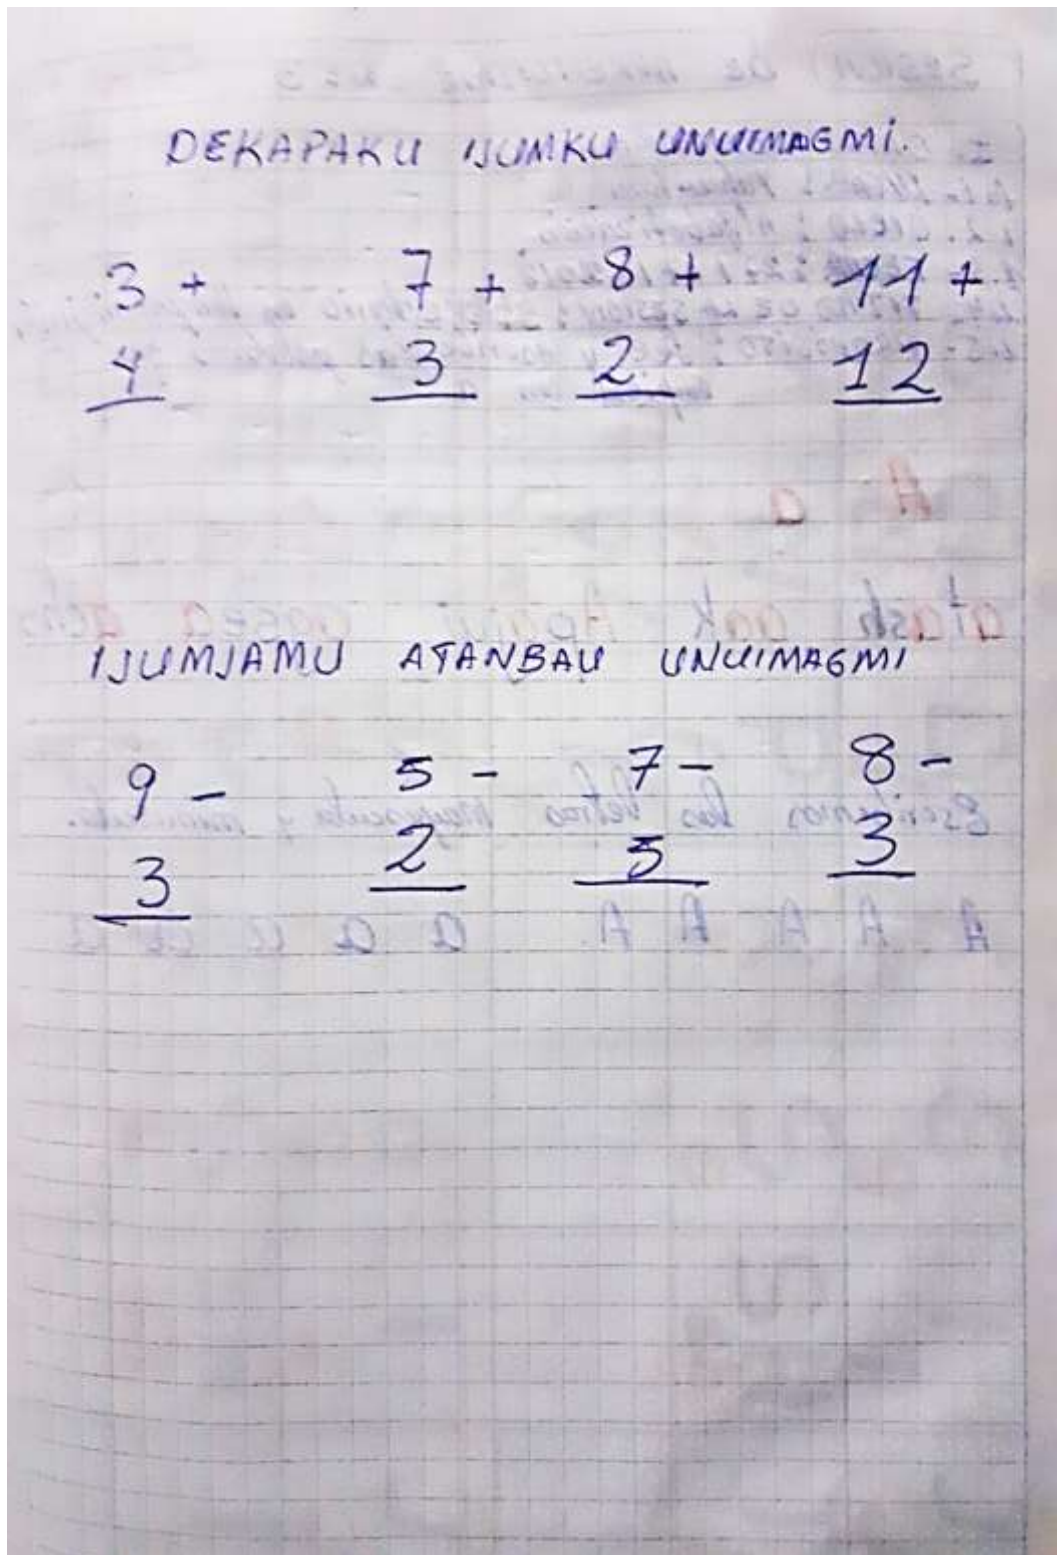 DEKAPAKU IJUMKU UNUIMAGMI.
3 + 7 + 8 + 11 +
4 3 2 12
IJUMJAMU ATANBAU UNUIMAGMI
9 - 5 - 7 - 8 -
3 2 5 3